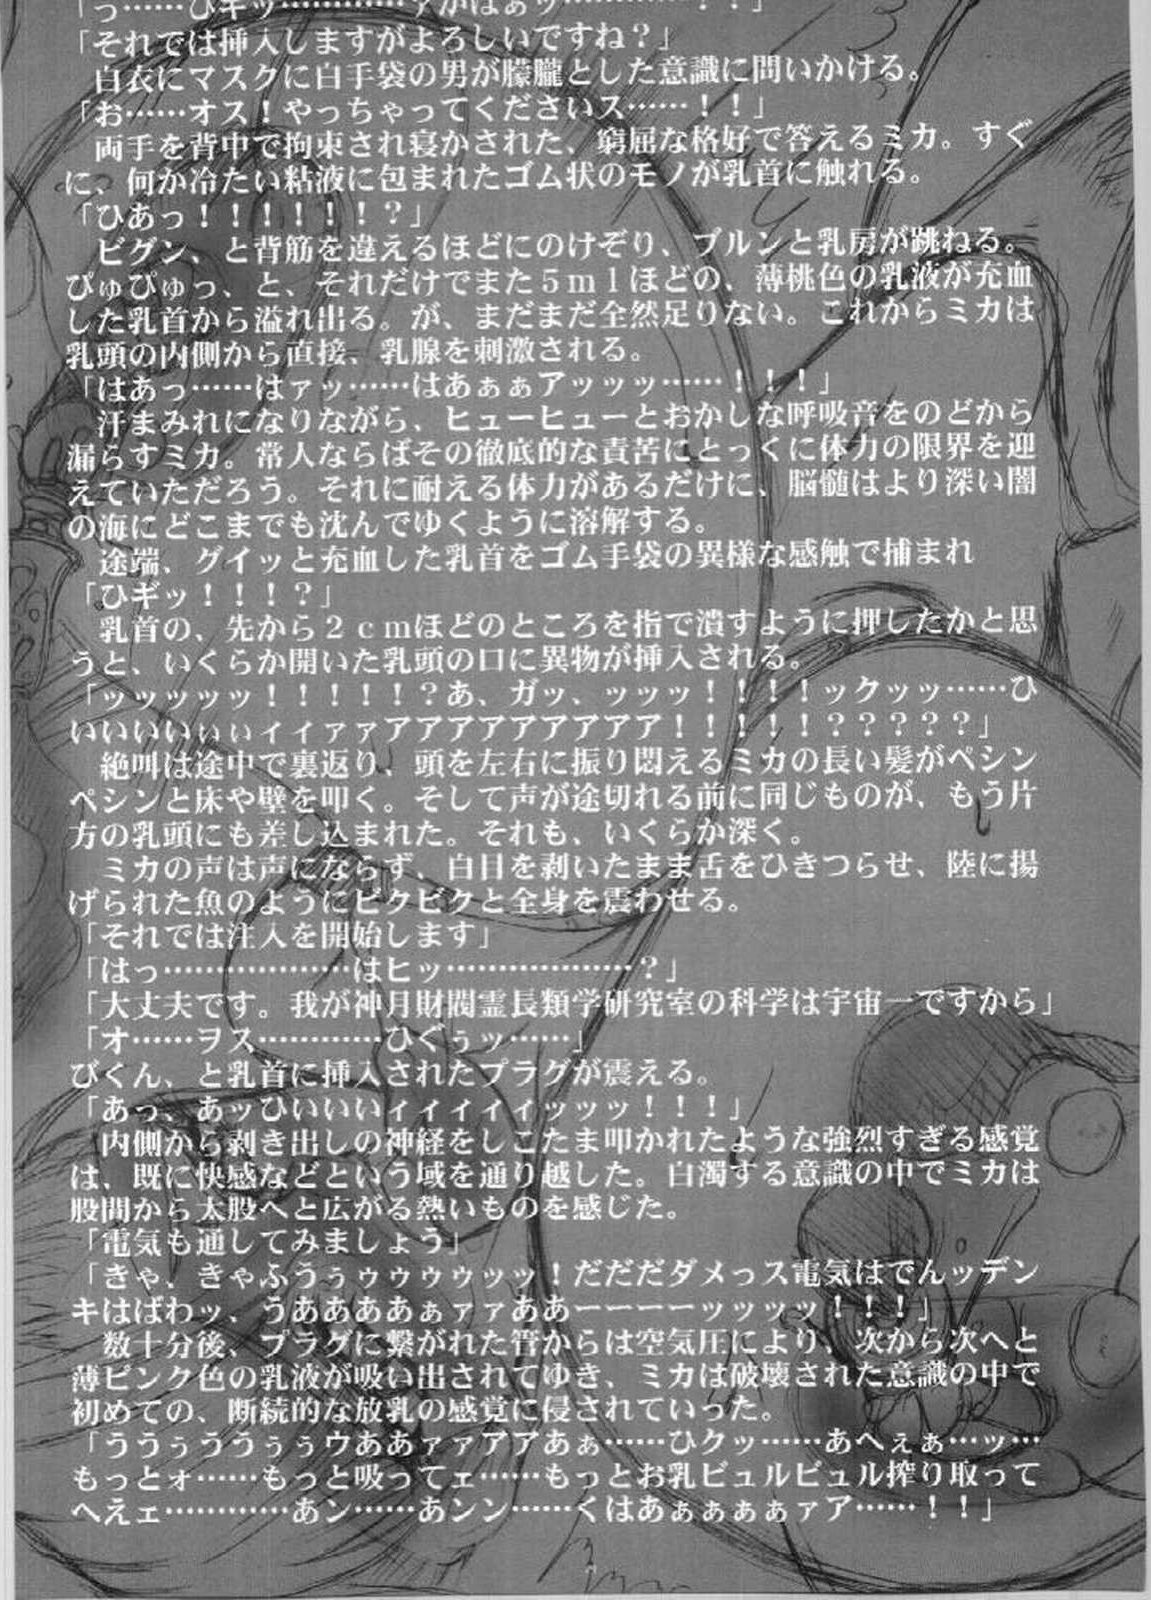 「っ……ひギッ…………ァがはぁッ…………！！」
「それでは挿入しますがよろしいですね？」
　白衣にマスクに白手袋の男が朦朧とした意識に問いかける。
「お……オス！やっちゃってくださいス……！！」
　両手を背中で拘束され寝かされた、窮屈な格好で答えるミカ。すぐ
に、何か冷たい粘液に包まれたゴム状のモノが乳首に触れる。
「ひあっ！！！！！！！？」
　ビグン、と背筋を違えるほどにのけぞり、ブルンと乳房が跳ねる。
ぴゅぴゅっ、と、それだけでまた５ｍｌほどの、薄桃色の乳液が充血
した乳首から溢れ出る。が、まだまだ全然足りない。これからミカは
乳頭の内側から直接、乳腺を刺激される。
「はあっ……はァッ……はあぁぁアッッッ……！！！」
　汗まみれになりながら、ヒューヒューとおかしな呼吸音をのどから
漏らすミカ。常人ならばその徹底的な責苦にとっくに体力の限界を迎
えていただろう。それに耐える体力があるだけに、脳髄はより深い闇
の海にどこまでも沈んでゆくように溶解する。
　途端、グイッと充血した乳首をゴム手袋の異様な感触で捕まれ
「ひギッ！！！？」
　乳首の、先から２ｃｍほどのところを指で潰すように押したかと思
うと、いくらか開いた乳頭の口に異物が挿入される。
「ッッッッッ！！！！！？あ、ガッ、ッッッ！！！！ックッッ……ひ
いいいいぃぃィィァァアアアアアアアアア！！！！！？？？？？」
　絶叫は途中で裏返り、頭を左右に振り悶えるミカの長い髪がペシン
ペシンと床や壁を叩く。そして声が途切れる前に同じものが、もう片
方の乳頭にも差し込まれた。それも、いくらか深く。
　ミカの声は声にならず、白目を剥いたまま舌をひきつらせ、陸に揚
げられた魚のようにビクビクと全身を震わせる。
「それでは注入を開始します」
「はっ…………………はヒッ…………………？」
「大丈夫です。我が神月財閥霊長類学研究室の科学は宇宙一ですから」
「オ……ヲス…………ひぐぅッ……」
びくん、と乳首に挿入されたプラグが震える。
「あっ、あッひいいいィィィィィッッッ！！！」
　内側から剥き出しの神経をしこたま叩かれたような強烈すぎる感覚
は、既に快感などという域を通り越した。白濁する意識の中でミカは
股間から太股へと広がる熱いものを感じた。
「電気も通してみましょう」
「きゃ、きゃふうぅゥゥゥゥッッ！だだだダメっス電気はでんッデン
キはばわッ、うああああぁァァああーーーーッッッッ！！！」
　数十分後、プラグに繋がれた管からは空気圧により、次から次へと
薄ピンク色の乳液が吸い出されてゆき、ミカは破壊された意識の中で
初めての、断続的な放乳の感覚に侵されていった。
「ううぅううぅぅウああァァアアあぁ……ひクッ……あへぇぁ…ッ…
もっとォ……もっと吸ってェ……もっとお乳ビュルビュル搾り取って
へえェ…………あン……あンン……くはあぁぁぁぁァア……！！」